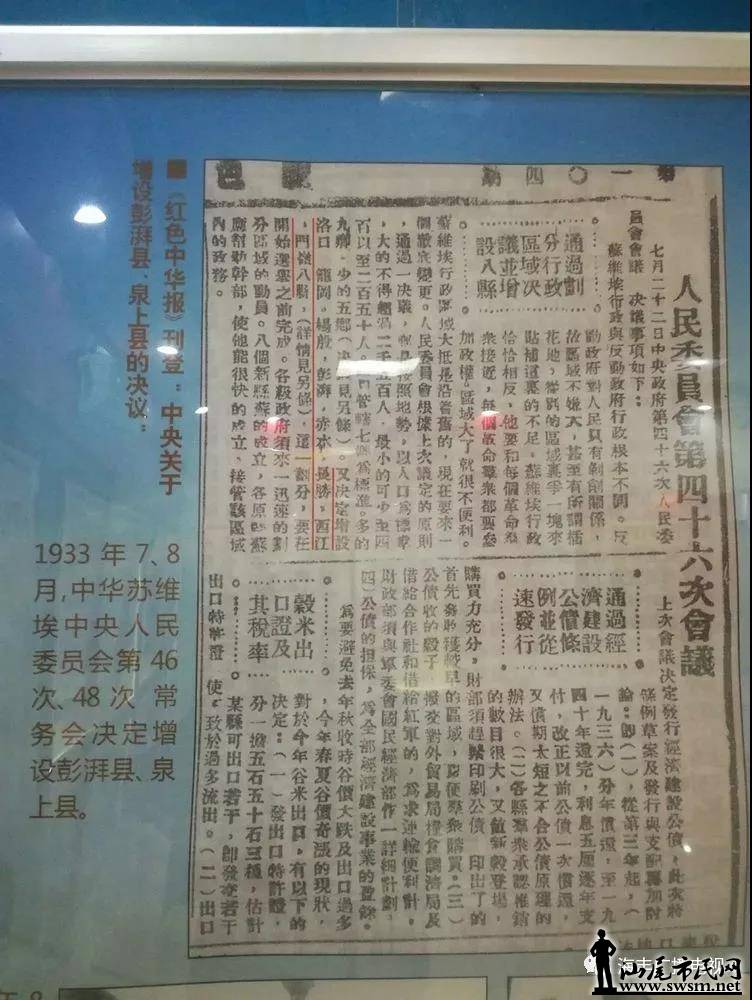 ■《红色中华报》刊登：中央关于
增设彭湃县、泉上县的决议：
1933年7、8
月,中华苏维
埃中央人民
委员会第46
次、48次 常
务会决定增
设彭湃县、泉
上县。
第一〇四期
人民委員會第四十六次會議
七月二十二日中央政府第四十六次人民委
員會會議 决議事項如下：
通過劃
分行政
區域决
議並增
設八縣
蘇維埃行政與反動政府行政根本不同。反
動政府對人民只有剝削關係，
故區域不嫌大，甚至有所謂插
花地，
貼補這裏的不足。蘇維埃行政
恰恰相反。他要和每個革命羣
衆接近，每個革命羣衆都要參
加政權。區域大了就很不便利。
蘇維埃行政區域大抵是沿舊舊的，現在要來一
個澈底變更。人民委員會根據上次議定的原則
，通過一决議，都是按照地勢，以人口爲標準
，大的不得超過二千五百人，最小的可少至四
百以至二百五十人。
九鄉，少的五鄉（决議見另條）。又决定增設
洛口，龍岡，楊殷，彭湃，赤水，長勝，西江
，門嶺八縣，（詳情見另條），這一劃分，要在
開始選舉之前完成。各級政府須來一迅速的劃
分區域的動員。八個新縣蘇的成立，各原
應幫助幹部，使他能很快的成立，接管該區域
內的政務。
上次會議決定發行經濟建設公債，此次將
通過經
濟建設
公債條
例並從
速發行
條例草案及發行與支配
論：卽（一），從第三年起，（
一九三六）分年償還，至一九
四十年還完，利息五厘逐年支
付，改正以前公債一次償還，
又償期太短之不合公債原理的
辦法。（二）各縣羣衆承認推銷
的數目很大，又値新穀登場，
購買力充分，財部須趕緊印刷公債，印出了的
首先發收穫較早的區域，以便羣衆購買。（三）
公債收的穀子，撥交對外貿易局糧食調濟局及
借給合作社和借給紅軍的，爲求運輸便利計，
財政部須與軍委會國民經濟部作一詳細計劃，
四）公債的担保，爲全部經濟建設事業的盈餘。
穀米出
口證及
其稅率
爲要避免去年秋收時谷價大跌及出口過多
，今年春夏谷價奇漲的現狀，
對於今年谷米出口，有以下的
决定：（一）發出口特許證，
分一擔五石五十石三種，估計
某縣可出口若干，卽發交若干
出口特許證，使
致於過多流出。（二）出口
汕尾市民网
www.swsm.net